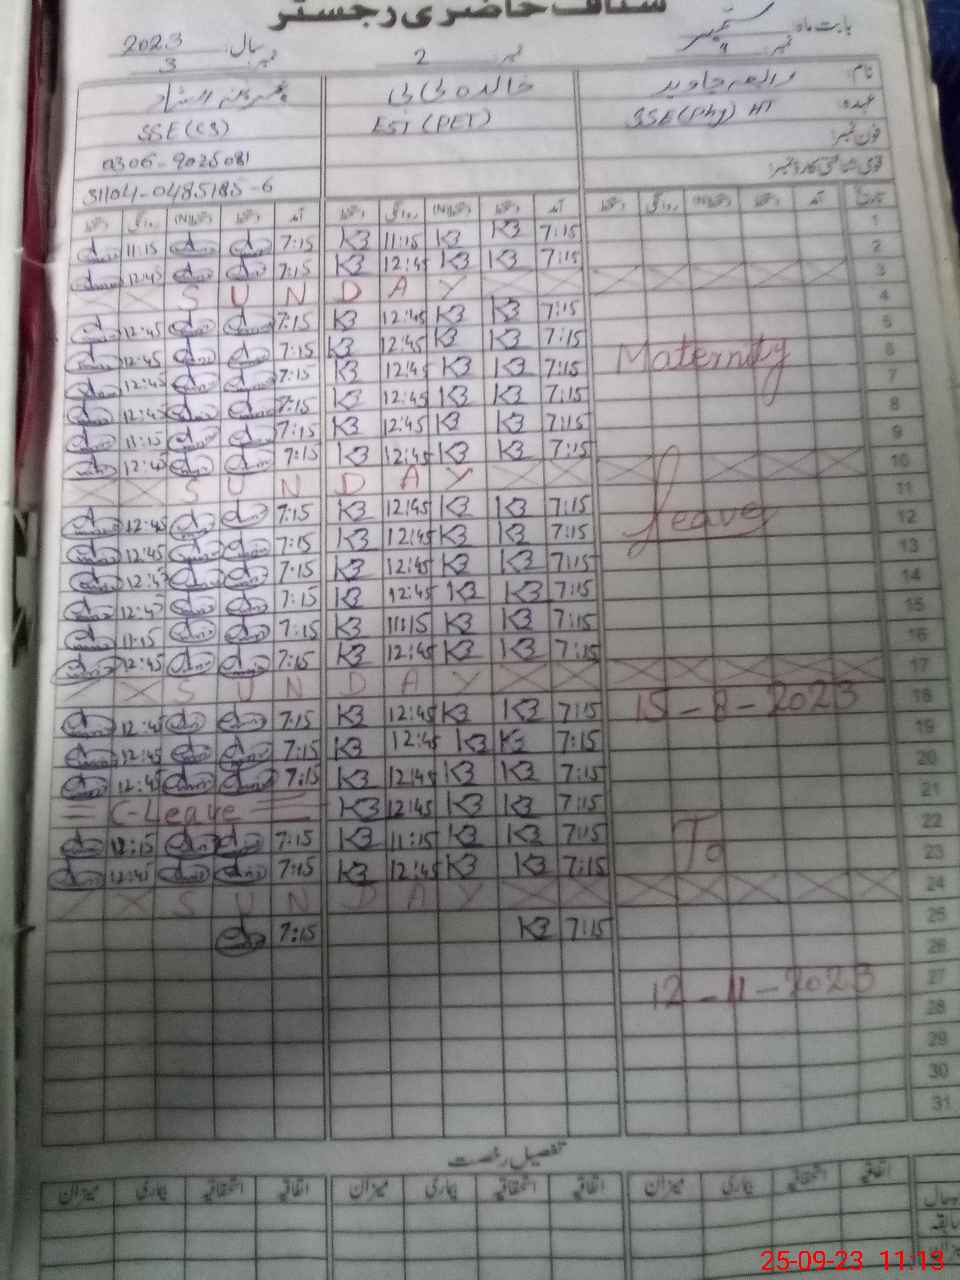 سٹاف حاضری رجسٹر
بابت ماہ: ستمبر سال: 2023
نمبر: 1 نمبر: 2 نمبر: 3
نام: رابعہ جاوید خالدہ بی بی
عہدہ: SSE(Phy) HT EST (PET) SSE (CS)
فون نمبر: 0306-9025081
قومی شناختی کارڈ نمبر: 31104-0485185-6
تاریخ آمد دستخط دستخط(N) روانگی دستخط آمد دستخط دستخط(N) روانگی دستخط آمد دستخط دستخط(N) روانگی دستخط
1 7:15 K3 K3 11:15 K3 7:15 11:15
2 7:15 K3 K3 12:45 K3 7:15 12:45
3 S U N D A Y
4 7:15 K3 K3 12:45 K3 7:15 12:45
5 7:15 K3 K3 12:45 K3 7:15 12:45
6 Maternity 7:15 K3 K3 12:45 K3 7:15 12:45
7 7:15 K3 K3 12:45 K3 7:15 12:45
8 7:15 K3 K3 12:45 K3 7:15 11:15
9 7:15 K3 K3 12:45 K3 7:15 12:45
10 S U N D A Y
11 7:15 K3 K3 12:45 K3 7:15 12:45
12 Leave 7:15 K3 K3 12:45 K3 7:15 12:45
13 7:15 K3 K3 12:45 K3 7:15 12:45
14 7:15 K3 K3 12:45 K3 7:15 12:45
15 7:15 K3 K3 11:15 K3 7:15 11:15
16 7:15 K3 K3 12:45 K3 7:15 12:45
17 S U N D A Y
18 15-8-2023 7:15 K3 K3 12:45 K3 7:15 12:45
19 7:15 K3 K3 12:45 K3 7:15 12:45
20 7:15 K3 K3 12:45 K3 7:15 12:45
21 7:15 K3 K3 12:45 K3 C-Leave
22 To 7:15 K3 K3 11:15 K3 7:15
23 7:15 K3 K3 12:45 K3 7:15 12:45
24 S U N D A Y
25 7:15 K3 7:15
26
27 12-11-2023
28
29
30
31
تفصیل رخصت
اتفاقیہ استحقاقیہ بیماری میزان اتفاقیہ استحقاقیہ بیماری میزان اتفاقیہ استحقاقیہ بیماری میزان
سابقہ
25-09-23 11:13